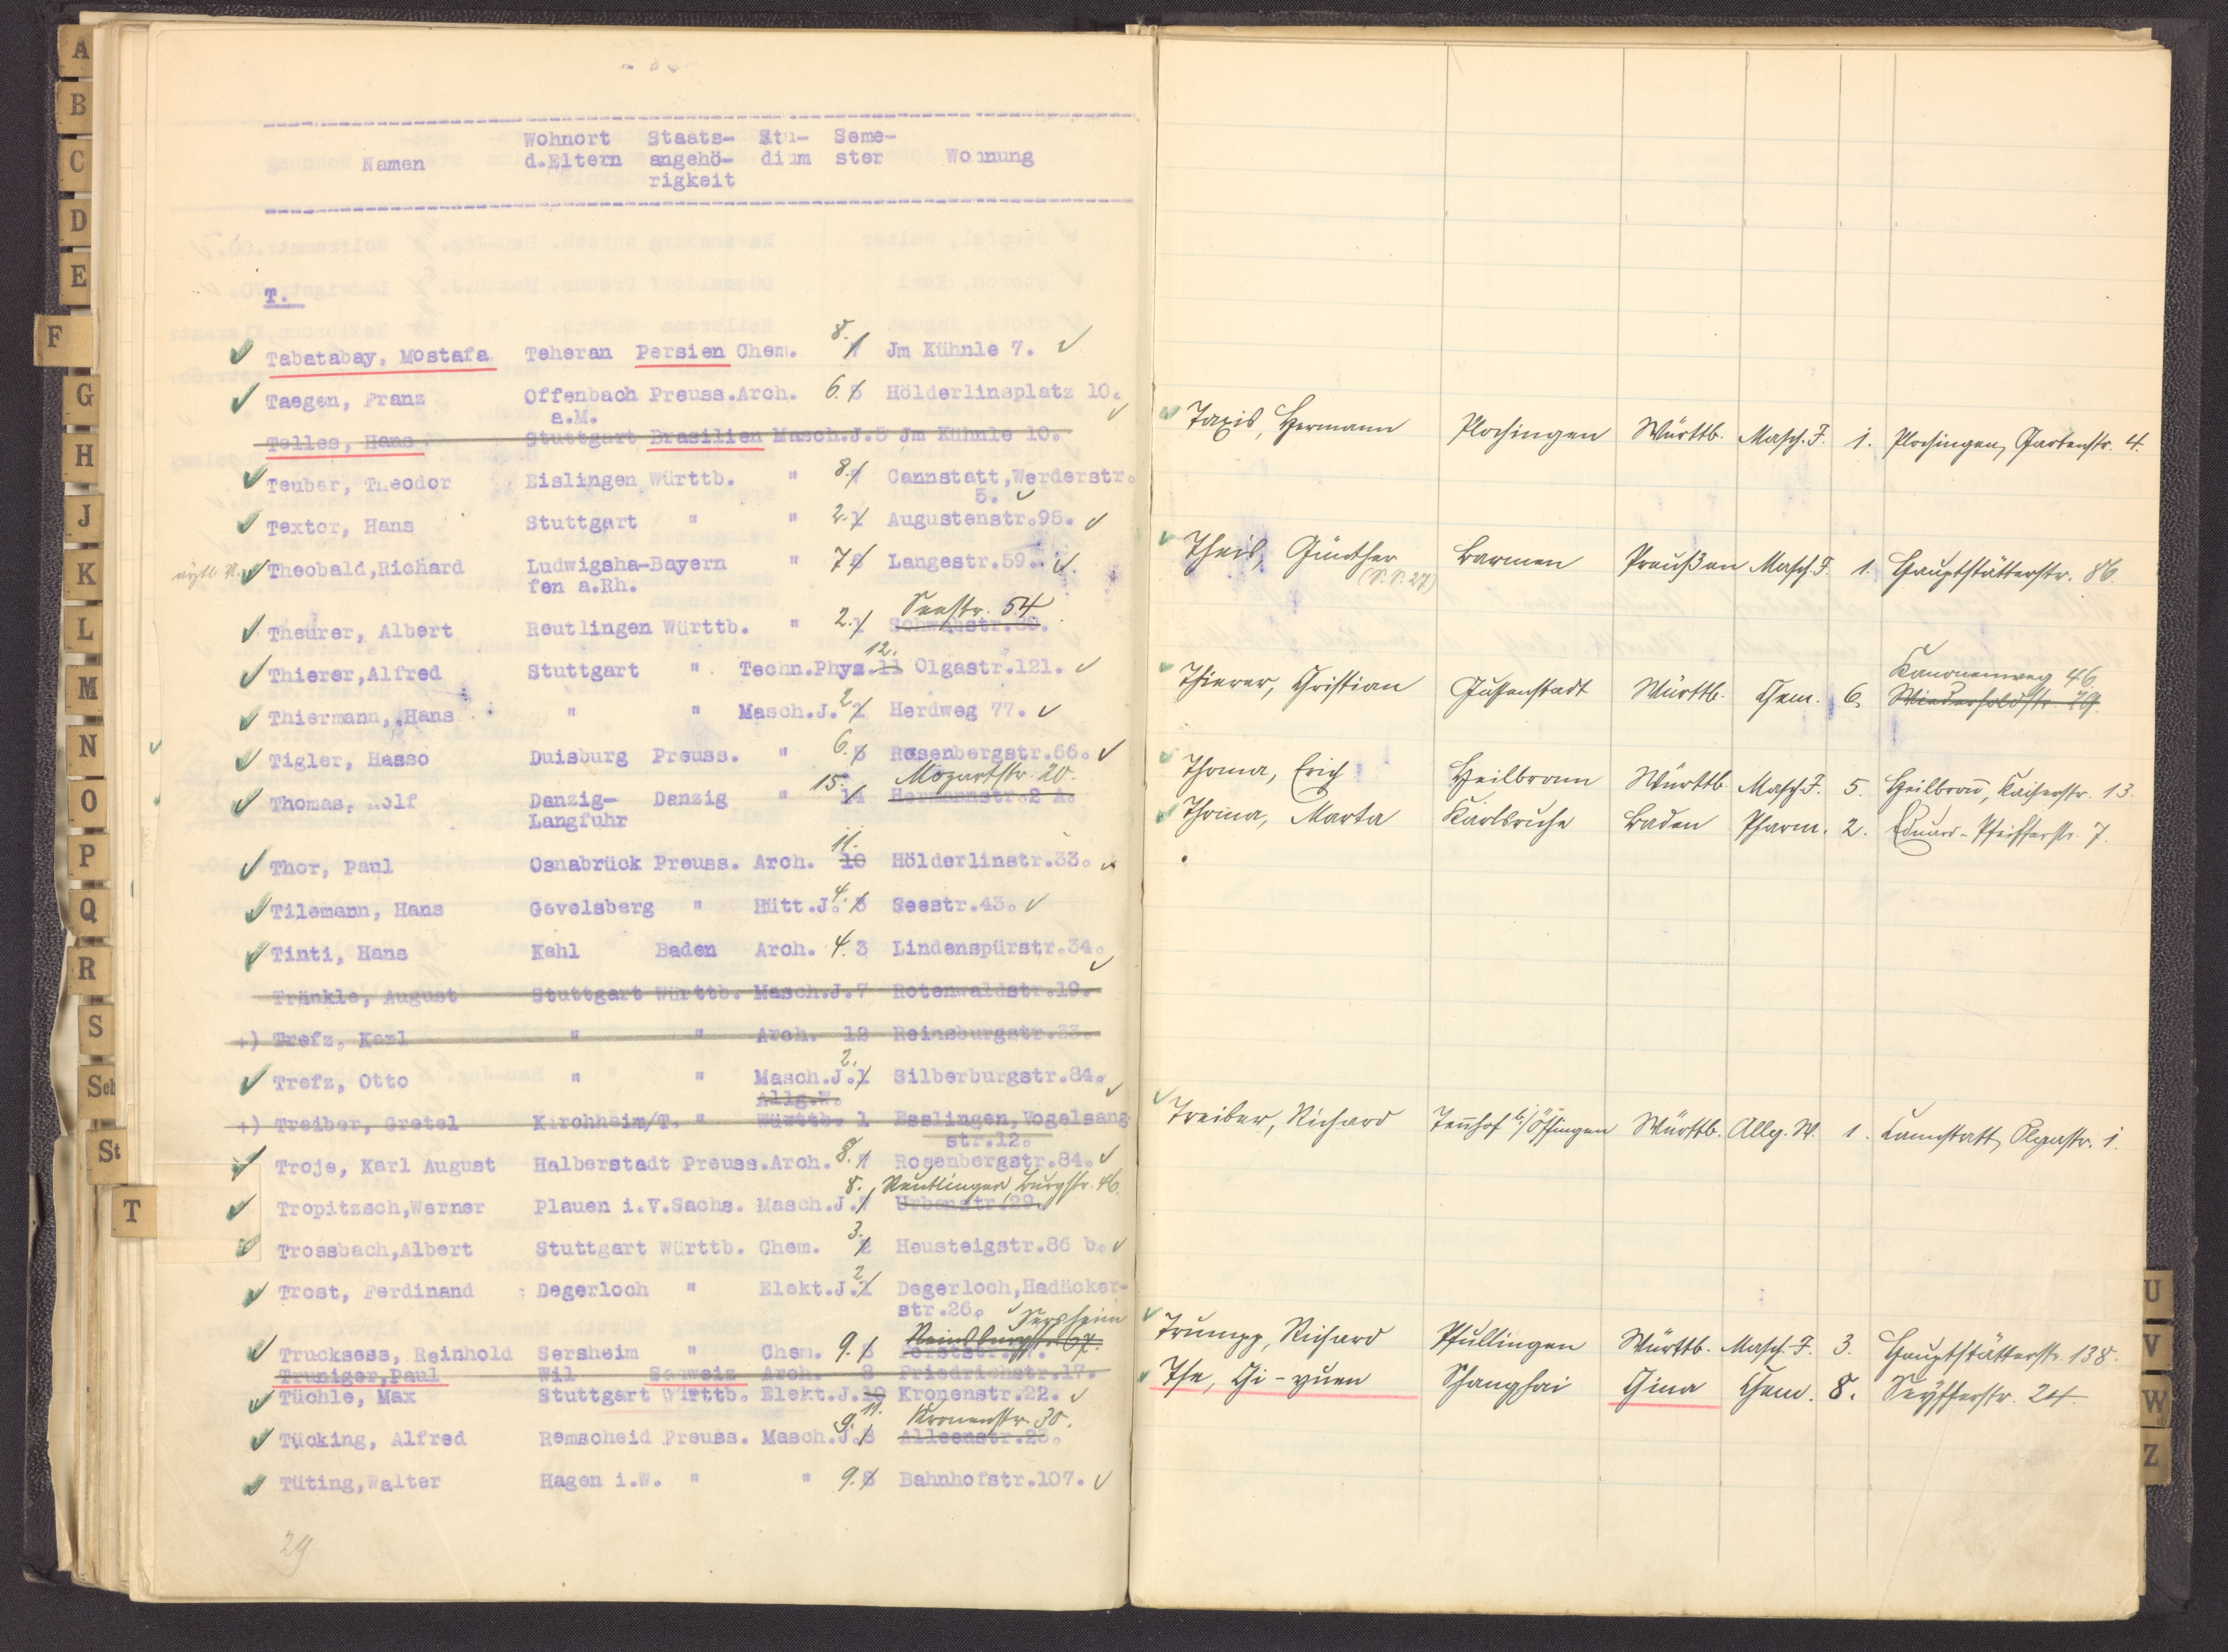 A
B
C
D
E
F
G
H
J
K
L
M
N
O
P
Q
R
S
Sch
St
T
Namen Wohnort d.Eltern Staats-angehö-rigkeit Stu-dium Seme-ster Wohnung
T.
Tabatabay, Mostafa Teheran Persien Chem. 8. 7 Jm Kühnle 7.
Taegen, Franz Offenbach Preuss. Arch. 6. 5 Hölderlinsplatz 10.
a.M.
Telles, Hans Stuttgart Brasilien Masch.J. 5 Jm Kühnle 10.
Teuber, Theodor Eislingen Württb. " 8. 7 Cannstatt, Werderstr.
5.
Textor, Hans Stuttgart " " 2. 1 Augustenstr.95.
Theobald, Richard Ludwigsha- Bayern " 7 6 Langestr.59.
fen a.Rh.
Seestr. 54
Theurer, Albert Reutlingen Württb. " 2. 1
12.
Thierer, Alfred Stuttgart " Techn.Phys. 11 Olgastr.121.
Thiermann, Hans " " Masch.J. 2. 1 Herdweg 77.
Tigler, Hasso Duisburg Preuss. " 6. 5 Rosenbergstr.66.
15. Mozartstr. 20.
Thomas, Rolf Danzig- Danzig " 14 Hermannstr.2 A.
Langfuhr
11.
Thor, Paul Osnabrück Preuss. Arch. 10 Hölderlinstr.33.
Tilemann, Hans Gevelsberg " Hütt.J. 4. 3 Seestr.43.
Tinti, Hans Kehl Baden Arch. 4. 3 Lindenspürstr.34.
Tränkle, August Stuttgart Württb. Masch.J. 7 Rotenwaldstr.19.
+) Trefz, Karl " " Arch. 12 Reinsburgstr.33.
2.
Trefz, Otto " " Masch.J. 1 Silberburgstr.84.
Allg.W.
+) Treiber, Gretel Kirchheim/T. " Württb. 1 Esslingen, Vogelsang-
str.12.
Troje, Karl August Halberstadt Preuss. Arch. 8. 7 Rosenbergstr.84.
8. Reutlingen, Burgstr. 46.
Tropitzsch, Werner Plauen i.V. Sachs. Masch.J. 7 Urbanstr.29.
3.
Trossbach, Albert Stuttgart Württb. Chem. 2 Heusteigstr.86 b.
2.
Trost, Ferdinand Degerloch " Elekt.J. 1 Degerloch, Hadäcker-
str.26.
Sersheim
Reinsburgstr. 67.
Trucksess, Reinhold Sersheim " Chem. 9. 8
Truniger, Paul Wil Schweiz Arch. 8 Friedrichstr.17.
Tüchle, Max Stuttgart Württb. Elekt.J. 10 Kronenstr.22.
11.
9. Kronenstr. 30.
Tücking, Alfred Remscheid Preuss. Masch.J. 8 Alleenstr.23.
Tüting, Walter Hagen i.W. " " 9. 8 Bahnhofstr.107.
29
Taxis, Hermann Plochingen Württb. Masch. J. 1. Plochingen, Gartenstr. 4.
Theis, Günther Barmen Preußen Masch. J. 1. Hauptstätterstr. 86.
(S.S. 27)
Kanonenweg 46.
Thierer, Christian Gussenstadt Württb. Chem. 6. Wiederholdstr. 29.
Thoma, Erich Heilbronn Württb. Masch. J. 5. Heilbron̄, Kaiserstr. 13.
Thoma, Marta Karlsruhe Baden Pharm. 2. Eduard-Pfeifferstr. 7.
Treiber, Richard Ten̄hof b/ Öffingen Württb. Allg. W. 1. Cannstatt, Olgastr. 1.
Trumpp, Richard Pfullingen Württb. Masch. J. 3. Hauptstätterstr. 138.
Tse, Chi-yuen Shanghai China Chem. 8. Seyfferstr. 24.
U
V
W
Z